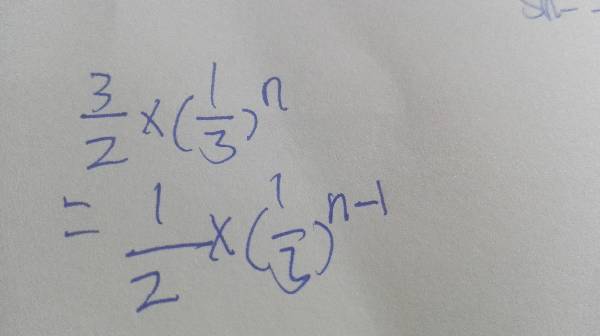 3/2 × (1/3)^n
= 1/2 × (1/3)^{n-1}